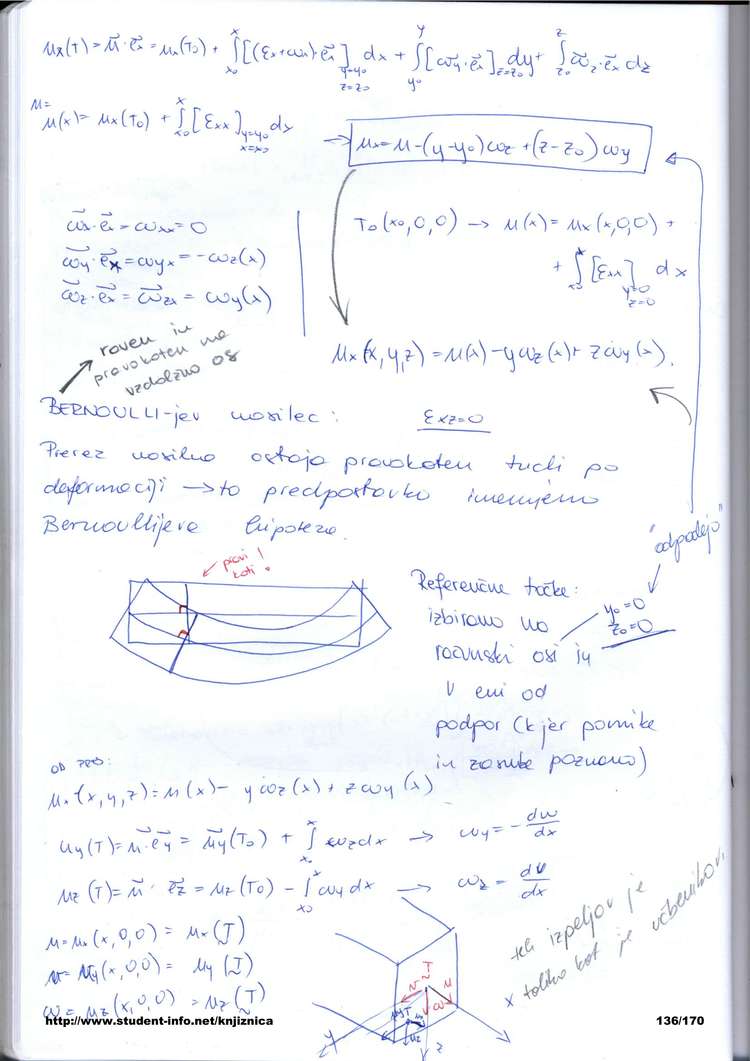 u_x(T) = \vec{u}·\vec{e_x} = u_x(T_0) + ∫_{x_0}^{x} [(ε_x+ω_x)·\vec{e_x}]_{y=y_0, z=z_0} dx + ∫_{y_0}^{y} [\vec{ω_y}·\vec{e_x}]_{z=z_0} dy + ∫_{z_0}^{z} \vec{ω}_z·\vec{e_x} dz
u=
u(x) = u_x(T_0) + ∫_{x_0}^{x} [ε_{xx}]_{y=y_0, x=x_0} dx
→ u_x = u-(y-y_0)ω_z + (z-z_0)ω_y
\vec{ω_x}·\vec{e_x} = ω_{xx} = 0
\vec{ω_y}·\vec{e_x} = ω_{yx} = -ω_z(x)
\vec{ω_z}·\vec{e_x} = \vec{ω_{zx}} = ω_y(x)
T_0(x_0,0,0) → u(x) = u_x(x,0,0) +
+ ∫_{x_0}^{x} [ε_{xx}]_{y=0, z=0} dx
u_x(x,y,z) = u(x) - yω_z(x) + zω_y(x).
raven in
pravokoten na
vzdolžno os
BERNOULLI-jev nosilec: ε_{xz}=0
Prerez nosilno ostaja pravokoten tudi po
deformaciji → to predpostavko imenujemo
Bernoullijeva hipoteza.
pravi!
koti
"odpadejo"
Referenčne točke:
izbiramo na
računski osi in
v eni od
podpor (kjer pomike
in zasuke poznamo)
y_0=0
z_0=0
OD PREJ:
u_x(x,y,z) = u(x) - yω_z(x) + zω_y(x)
u_y(T) = \vec{u}·\vec{e_y} = \vec{u_y}(T_0) + ∫_{x_0}^{x} ω_z dx → ω_y = -\frac{dw}{dx}
u_z(T) = \vec{u}·\vec{e_z} = u_z(T_0) - ∫_{x_0}^{x} ω_y dx → ω_z = \frac{dv}{dx}
u = u_x(x,0,0) = u_x(T)
v = u_y(x,0,0) = u_y(T)
ω = u_z(x,0,0) = u_z(T)
teh izpeljav je
x toliko kot je učbenikov.
y
z
http://www.student-info.net/knjiznica
136/170